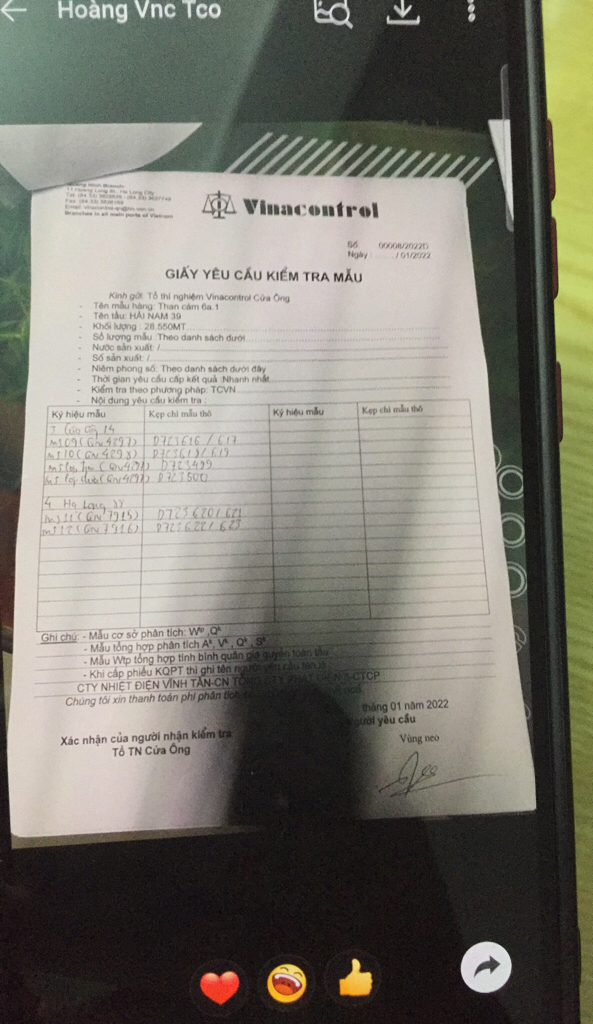 Hoàng Vnc Tco
Branches in all main ports of Vietnam
Vinacontrol
Số: 00008/2022D
Ngày: ......../ 01/2022
GIẤY YÊU CẦU KIỂM TRA MẪU
Kính gửi: Tổ thí nghiệm Vinacontrol Cửa Ông
- Tên mẫu hàng: Than cám 6a.1
- Tên tàu: HẢI NAM 39
- Khối lượng : 26.550MT
- Số lượng mẫu :Theo danh sách dưới
- Nước sản xuất: /
- Số sản xuất: /
- Niêm phong số: Theo danh sách dưới đây
- Thời gian yêu cầu cấp kết quả :Nhanh nhất
- Kiểm tra theo phương pháp: TCVN
- Nội dung yêu cầu kiểm tra :
Ký hiệu mẫu Kẹp chì mẫu thô Ký hiệu mẫu Kẹp chì mẫu thô
14
(GN 4297) D723616 / 617
D723618/ 619
D723499
D723500
4 Hạ Long
MS11 (GN 7915) D723620/621
MS12 (GN 7916) D723622/623
Ghi chú: - Mẫu cơ sở phân tích: Wtp ,Qk
- Mẫu tổng hợp phân tích Ak, Vk, Qk , Sk
- Mẫu Wtp tổng hợp tính bình quân gia quyền toàn tàu
- Khi cấp phiếu KQPT thì ghi tên người yêu cầu
CTY NHIỆT ĐIỆN VĨNH TÂN-CN
Chúng tôi xin thanh toán phí phân tích
tháng 01 năm 2022
Xác nhận của người nhận kiểm tra
Người yêu cầu
Tổ TN Cửa Ông
Vùng neo